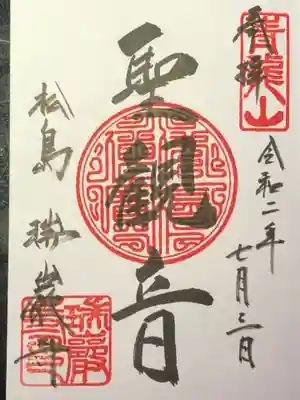 奉拝
青龍山
令和二年
七月三日
聖観音
松島 瑞巌寺
瑞巌